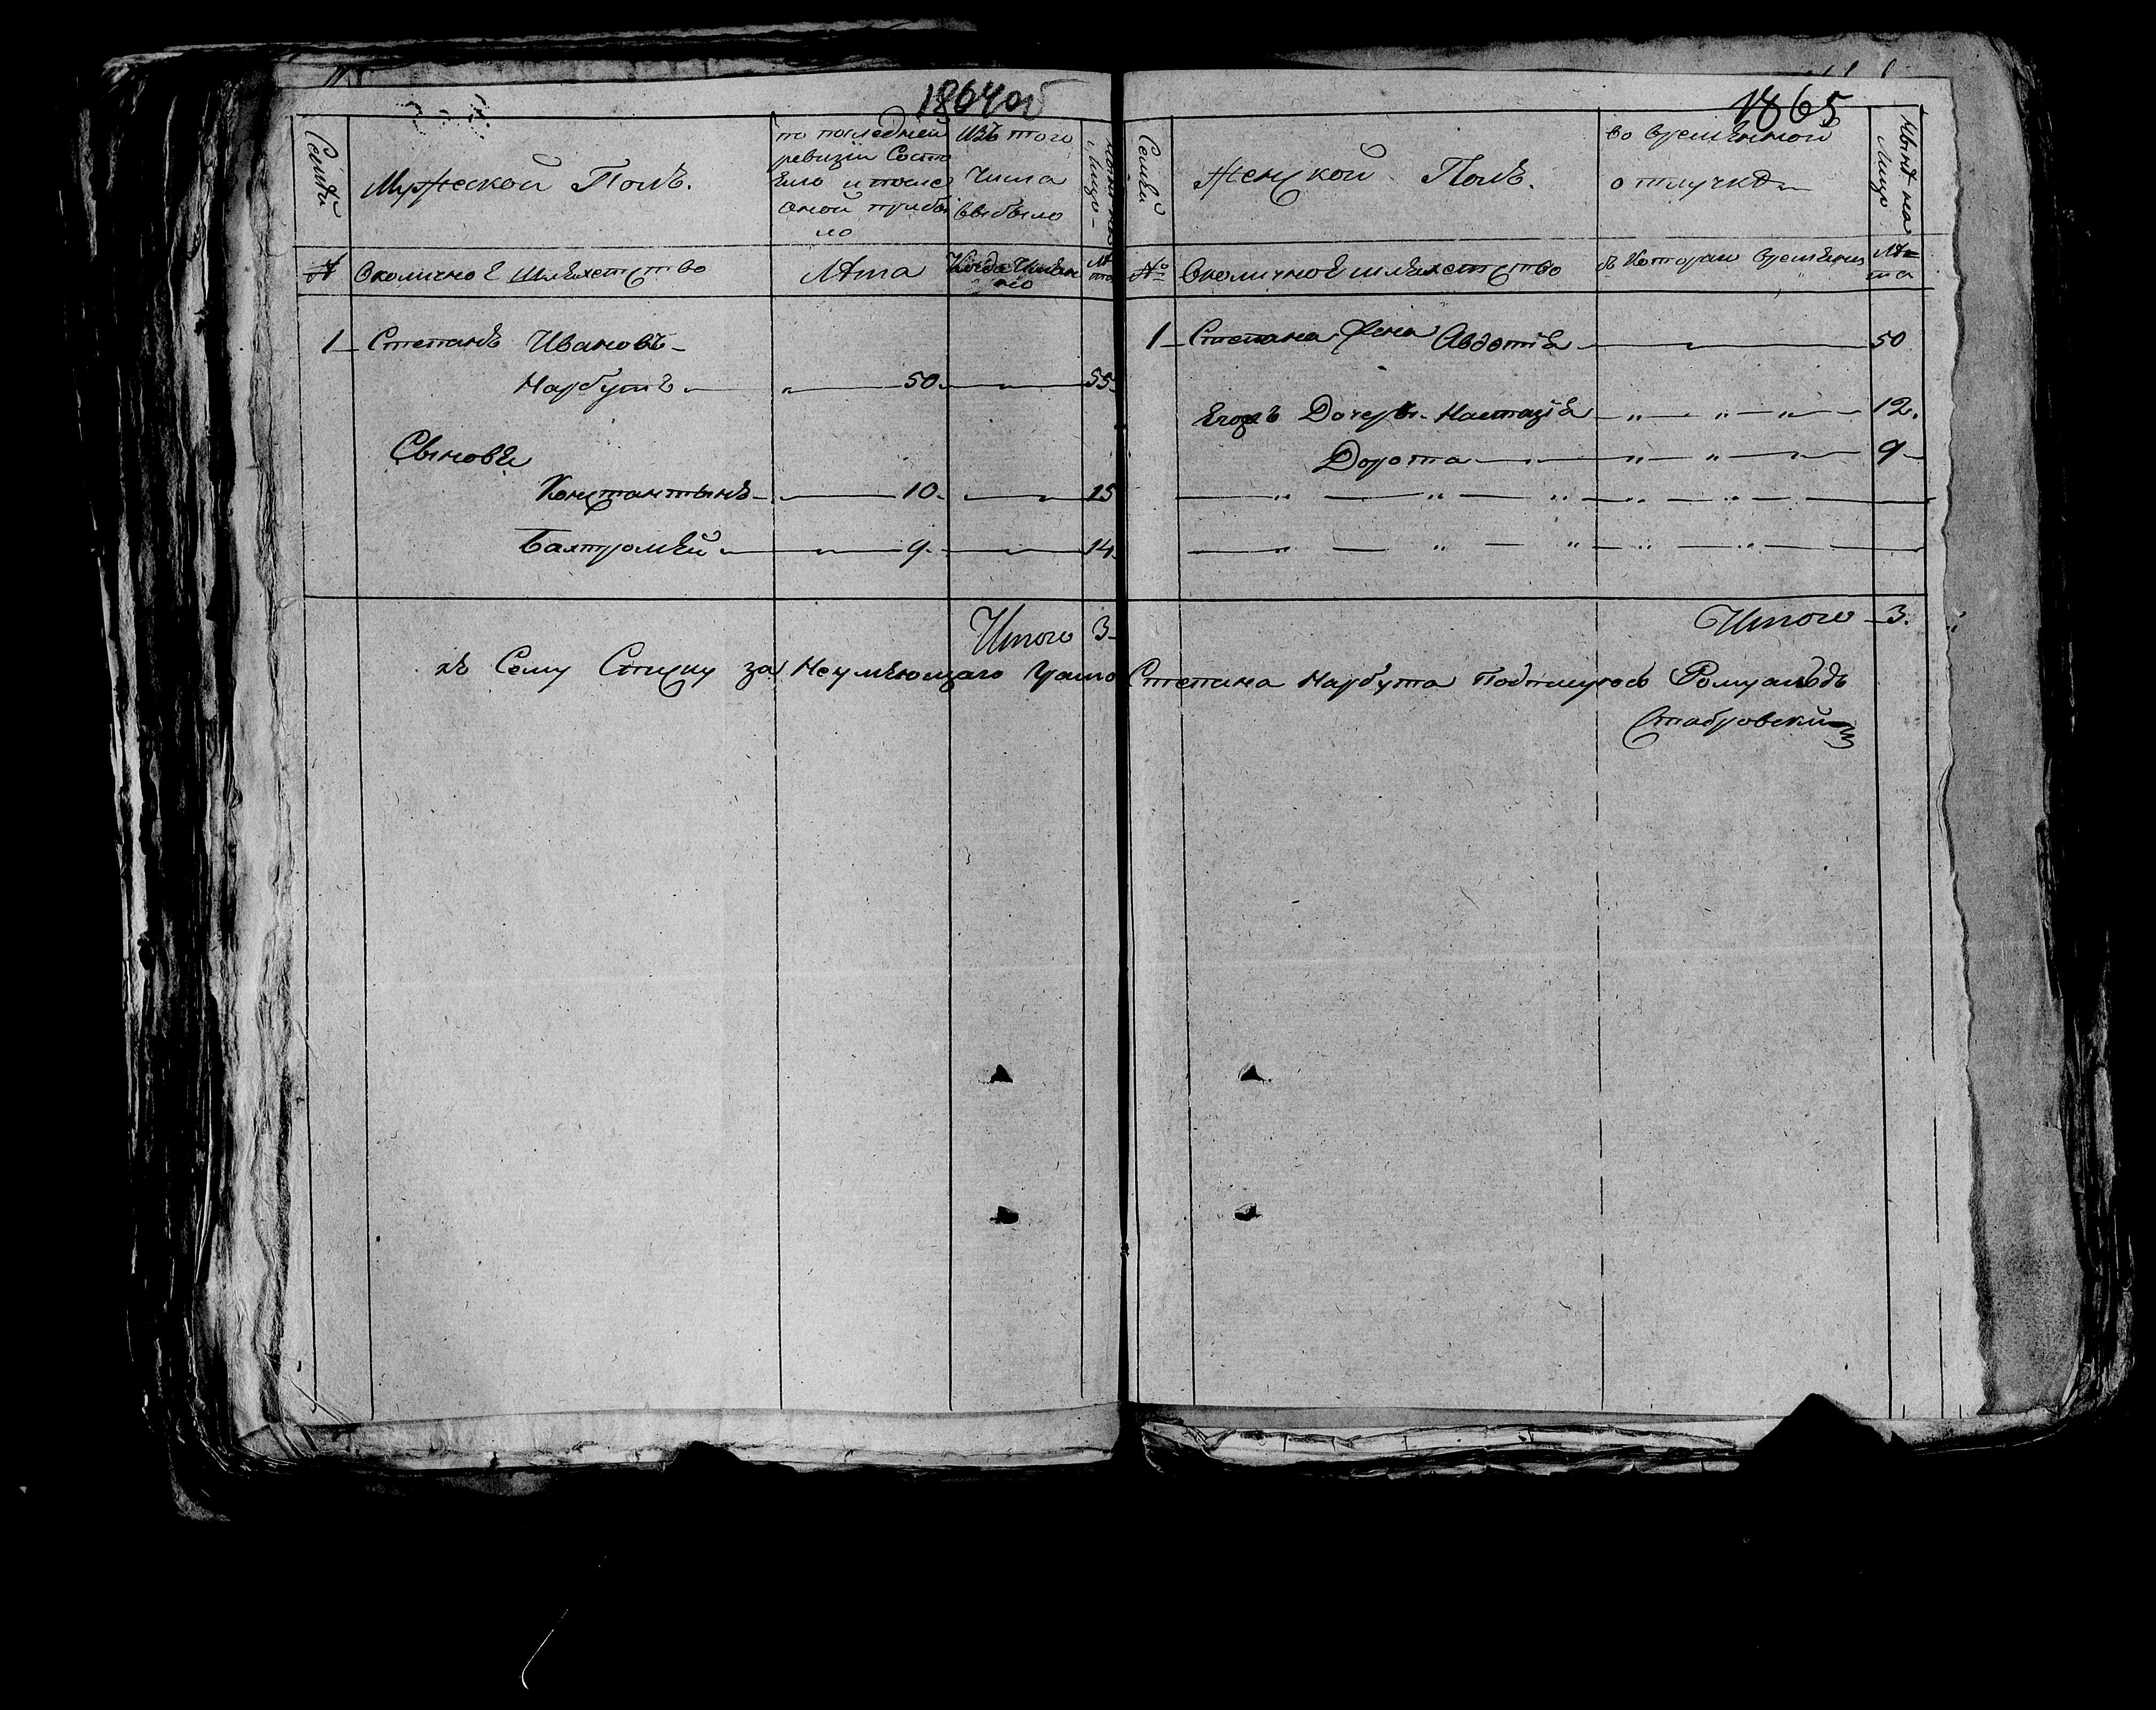 1864об
Семьи
Мужеской Полъ.
по последней
ревизіи Состо
яло и после
оной прибы
ло
Изъ того
Числа
выбыло
Ныне на
Лицо
№
Околичное Шляхетство
Лѣта
Когда Имян
но
Лѣ
та
1 Степанъ Ивановъ
Нарбутъ 50. 55
Сыновья
Константынъ 10. 15
Балтромей 9. 14
Итого 3
1865
Семьи
Женской Полъ.
во временной
отлучке
Нынѣ на
Лицо
№
Околичное шляхетство
съ Котораго времяни
Лѣ
та
1 Степана Жена Авдотія 50
Егожъ Дочеры Настазія 12.
Дорота 9
Итого 3.
къ Сему Списку за Неумѣющаго Грамо Степана Нарбута Подписуюсь Ромуальдъ
Стабровский